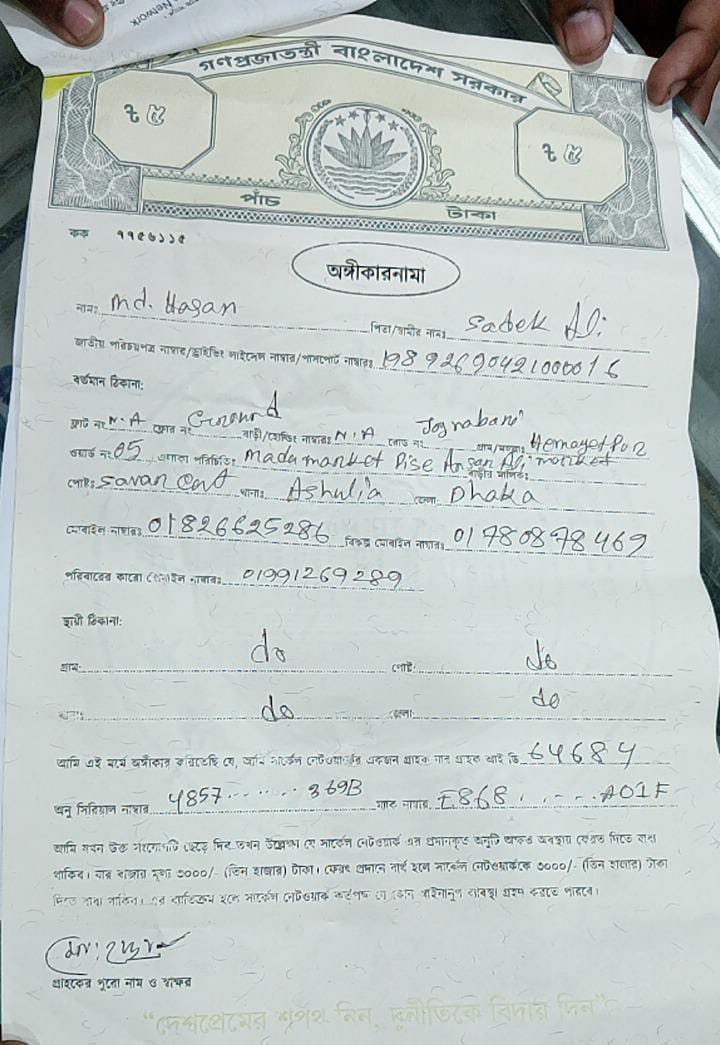 Network
গণপ্রজাতন্ত্রী বাংলাদেশ সরকার
৳ ৫ ৳ ৫
পাঁচ টাকা
কক ৭৭৫৬১১৫
অঙ্গীকারনামা
নামঃ Md. Hasan পিতা/স্বামীর নামঃ Sadek Ali
জাতীয় পরিচয়পত্র নাম্বার/ড্রাইভিং লাইসেন্স নাম্বার/পাসপোর্ট নাম্বারঃ 19892690421000016
বর্তমান ঠিকানা:
ফ্লাট নং N.A ফ্লোর নং Ground বাড়ী/হোল্ডিং নাম্বারঃ N.A রোড নং Joynabari গ্রাম/মহল্লাঃ Hemayetpur
ওয়ার্ড নং 05 এলাকা পরিচিতিঃ Madumarket Pise Ansar Ali market
পোষ্টঃ Savar Cant থানাঃ Ashulia জেলাঃ Dhaka
মোবাইল নাম্বারঃ 01826625286 বিকল্প মোবাইল নাম্বারঃ 01780878469
পরিবারের কারো মোবাইল নাম্বারঃ 01991269289
স্থায়ী ঠিকানা:
গ্রাম: do পোষ্ট: do
থানাঃ do জেলা: do
আমি এই মর্মে অঙ্গীকার করিতেছি যে, আমি সার্কেল নেটওয়ার্কের একজন গ্রাহক যার গ্রাহক আই ডি 64684
অনু সিরিয়াল নাম্বার 4857.......369B ম্যাক নাম্বার E868.....A01F
আমি যখন উক্ত সংযোগটি ছেড়ে দিব তখন উল্লেখ্য যে সার্কেল নেটওয়ার্ক এর প্রদানকৃত অনুটি অক্ষত অবস্থায় ফেরত দিতে বাধ্য
থাকিব। যার বাজার মূল্য ৩০০০/- (তিন হাজার) টাকা। ফেরৎ প্রদানে ব্যর্থ হলে সার্কেল নেটওয়ার্ককে ৩০০০/- (তিন হাজার) টাকা
দিতে বাধ্য থাকিব। এর ব্যতিক্রম হলে সার্কেল নেটওয়ার্ক কর্তৃপক্ষ যে কোন আইনানুগ ব্যবস্থা গ্রহণ করতে পারবে।
গ্রাহকের পুরো নাম ও স্বাক্ষর
“দেশপ্রেমের শপথ নিন, দুর্নীতিকে বিদায় দিন”